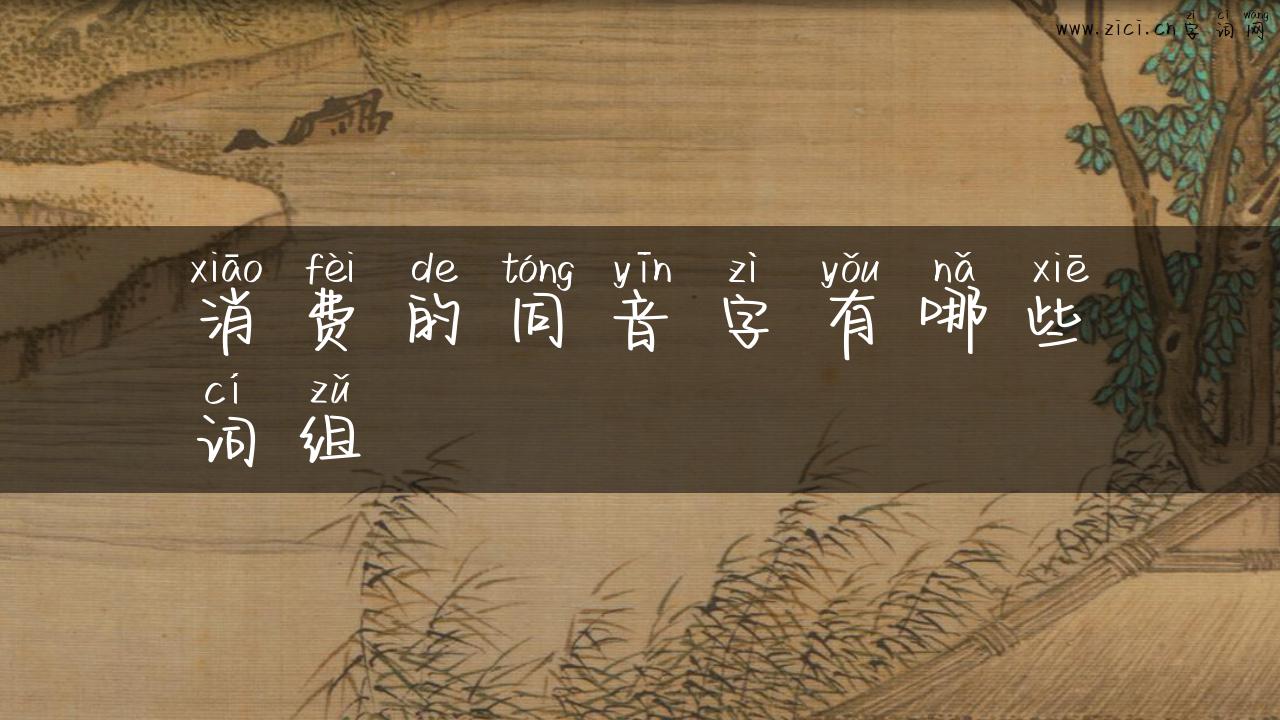 zì cí wǎng
www.zici.cn字词网
xiāo fèi de tóng yīn zì yǒu nǎ xiē
消费的同音字有哪些
cí zǔ
词组